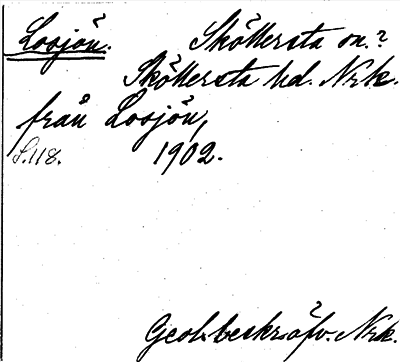 Losjön. Sköllersta sn.?
Sköllersta hd. Nrk.
från Losjön,
S.118. 1902.
Geol. beskräfv. Nrk.